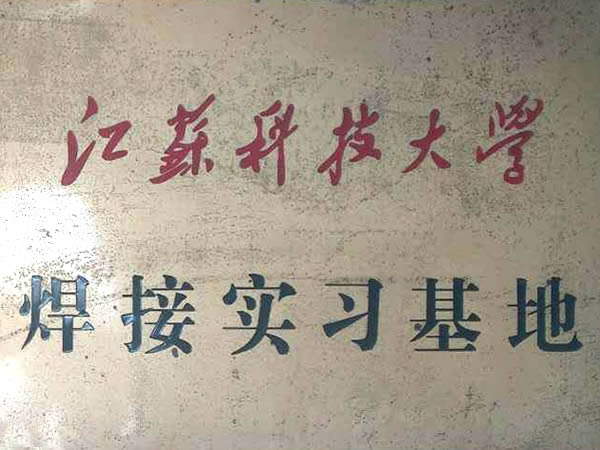 江蘇科技大學
焊接实习基地